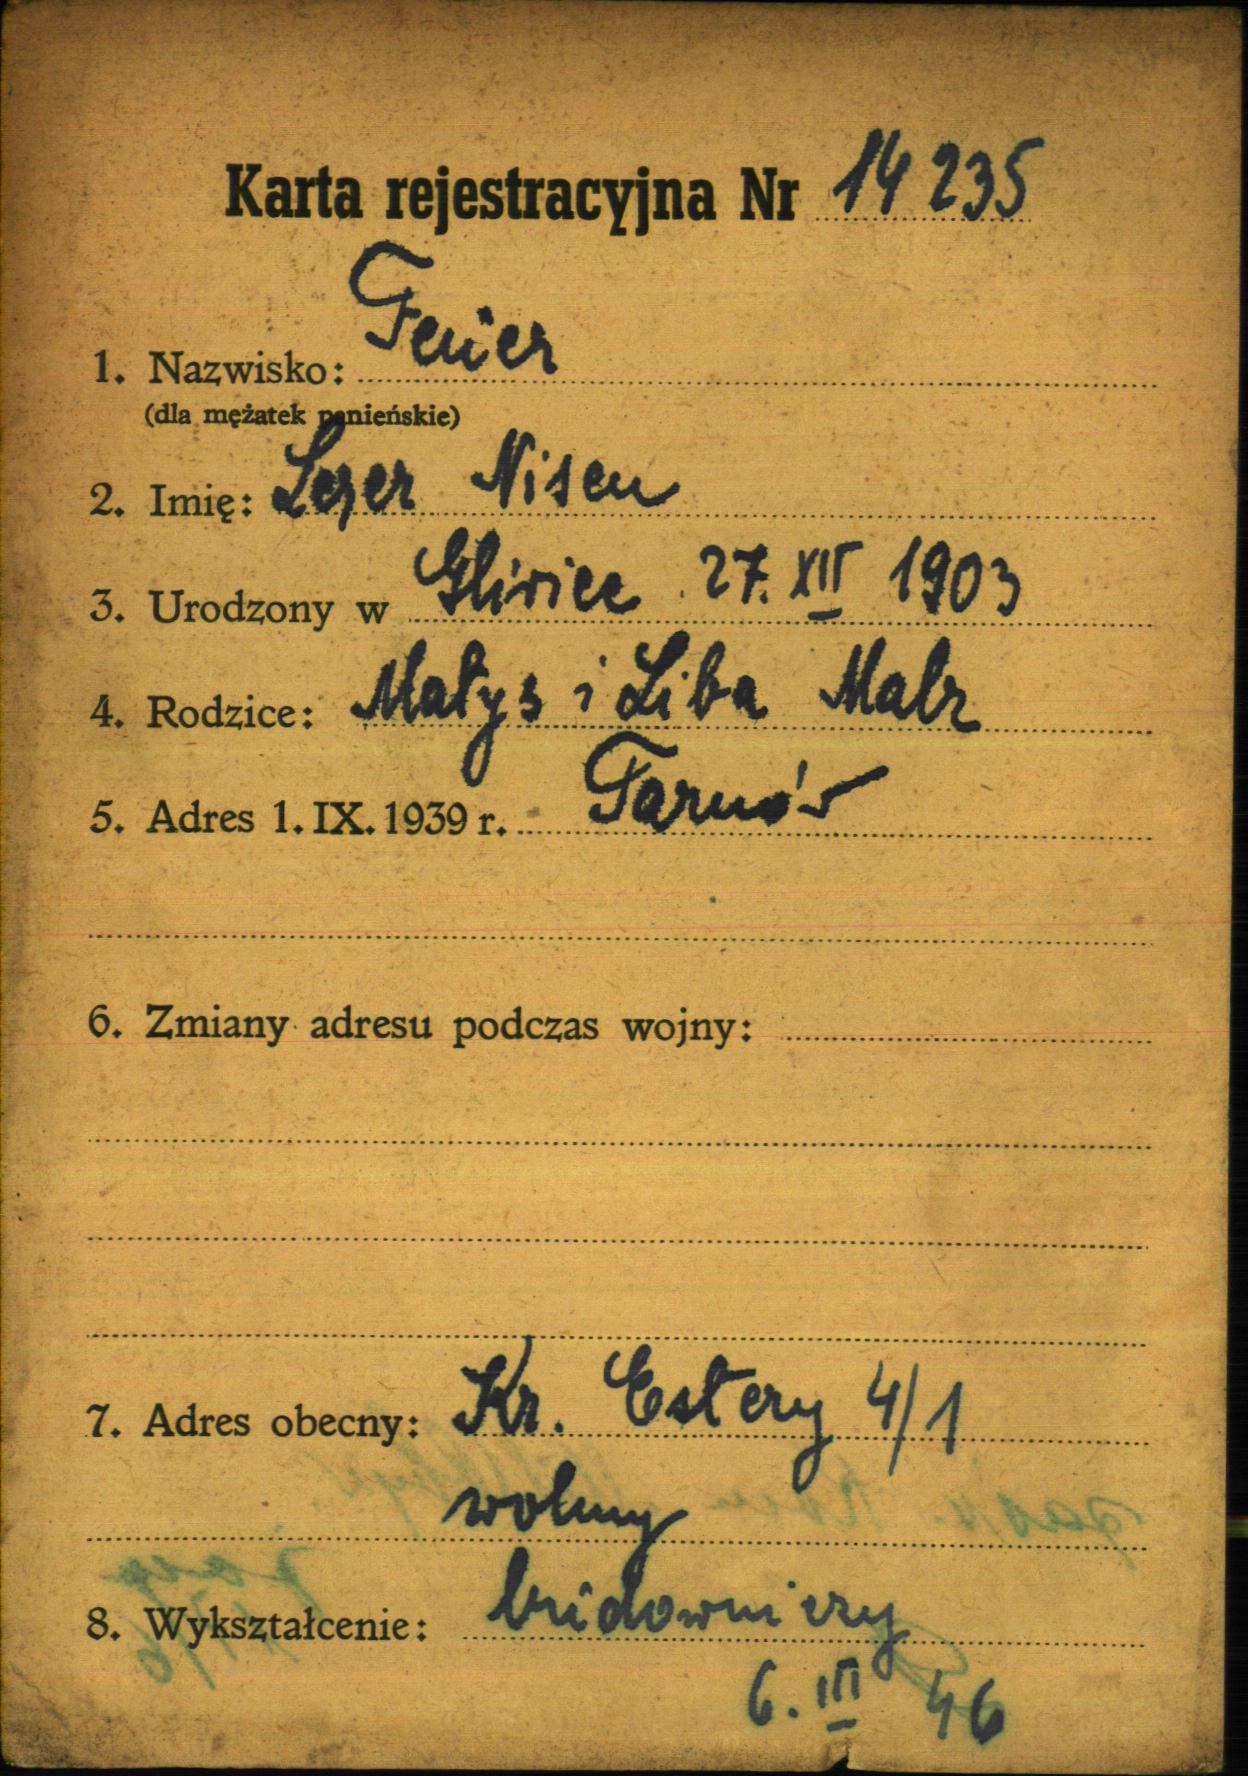 Karta rejestracyjna Nr 14 235
1. Nazwisko: Feuer
(dla mężatek panieńskie)
2. Imię: Lezer Nisen
3. Urodzony w Gliwice 27. XII 1903
4. Rodzice: Matys i Liba Malz
5. Adres 1. IX. 1939 r. Tarnów
6. Zmiany adresu podczas wojny:
7. Adres obecny: Kr. Estery 4/1
wolny
8. Wykształcenie: budowniczy
6. III 46